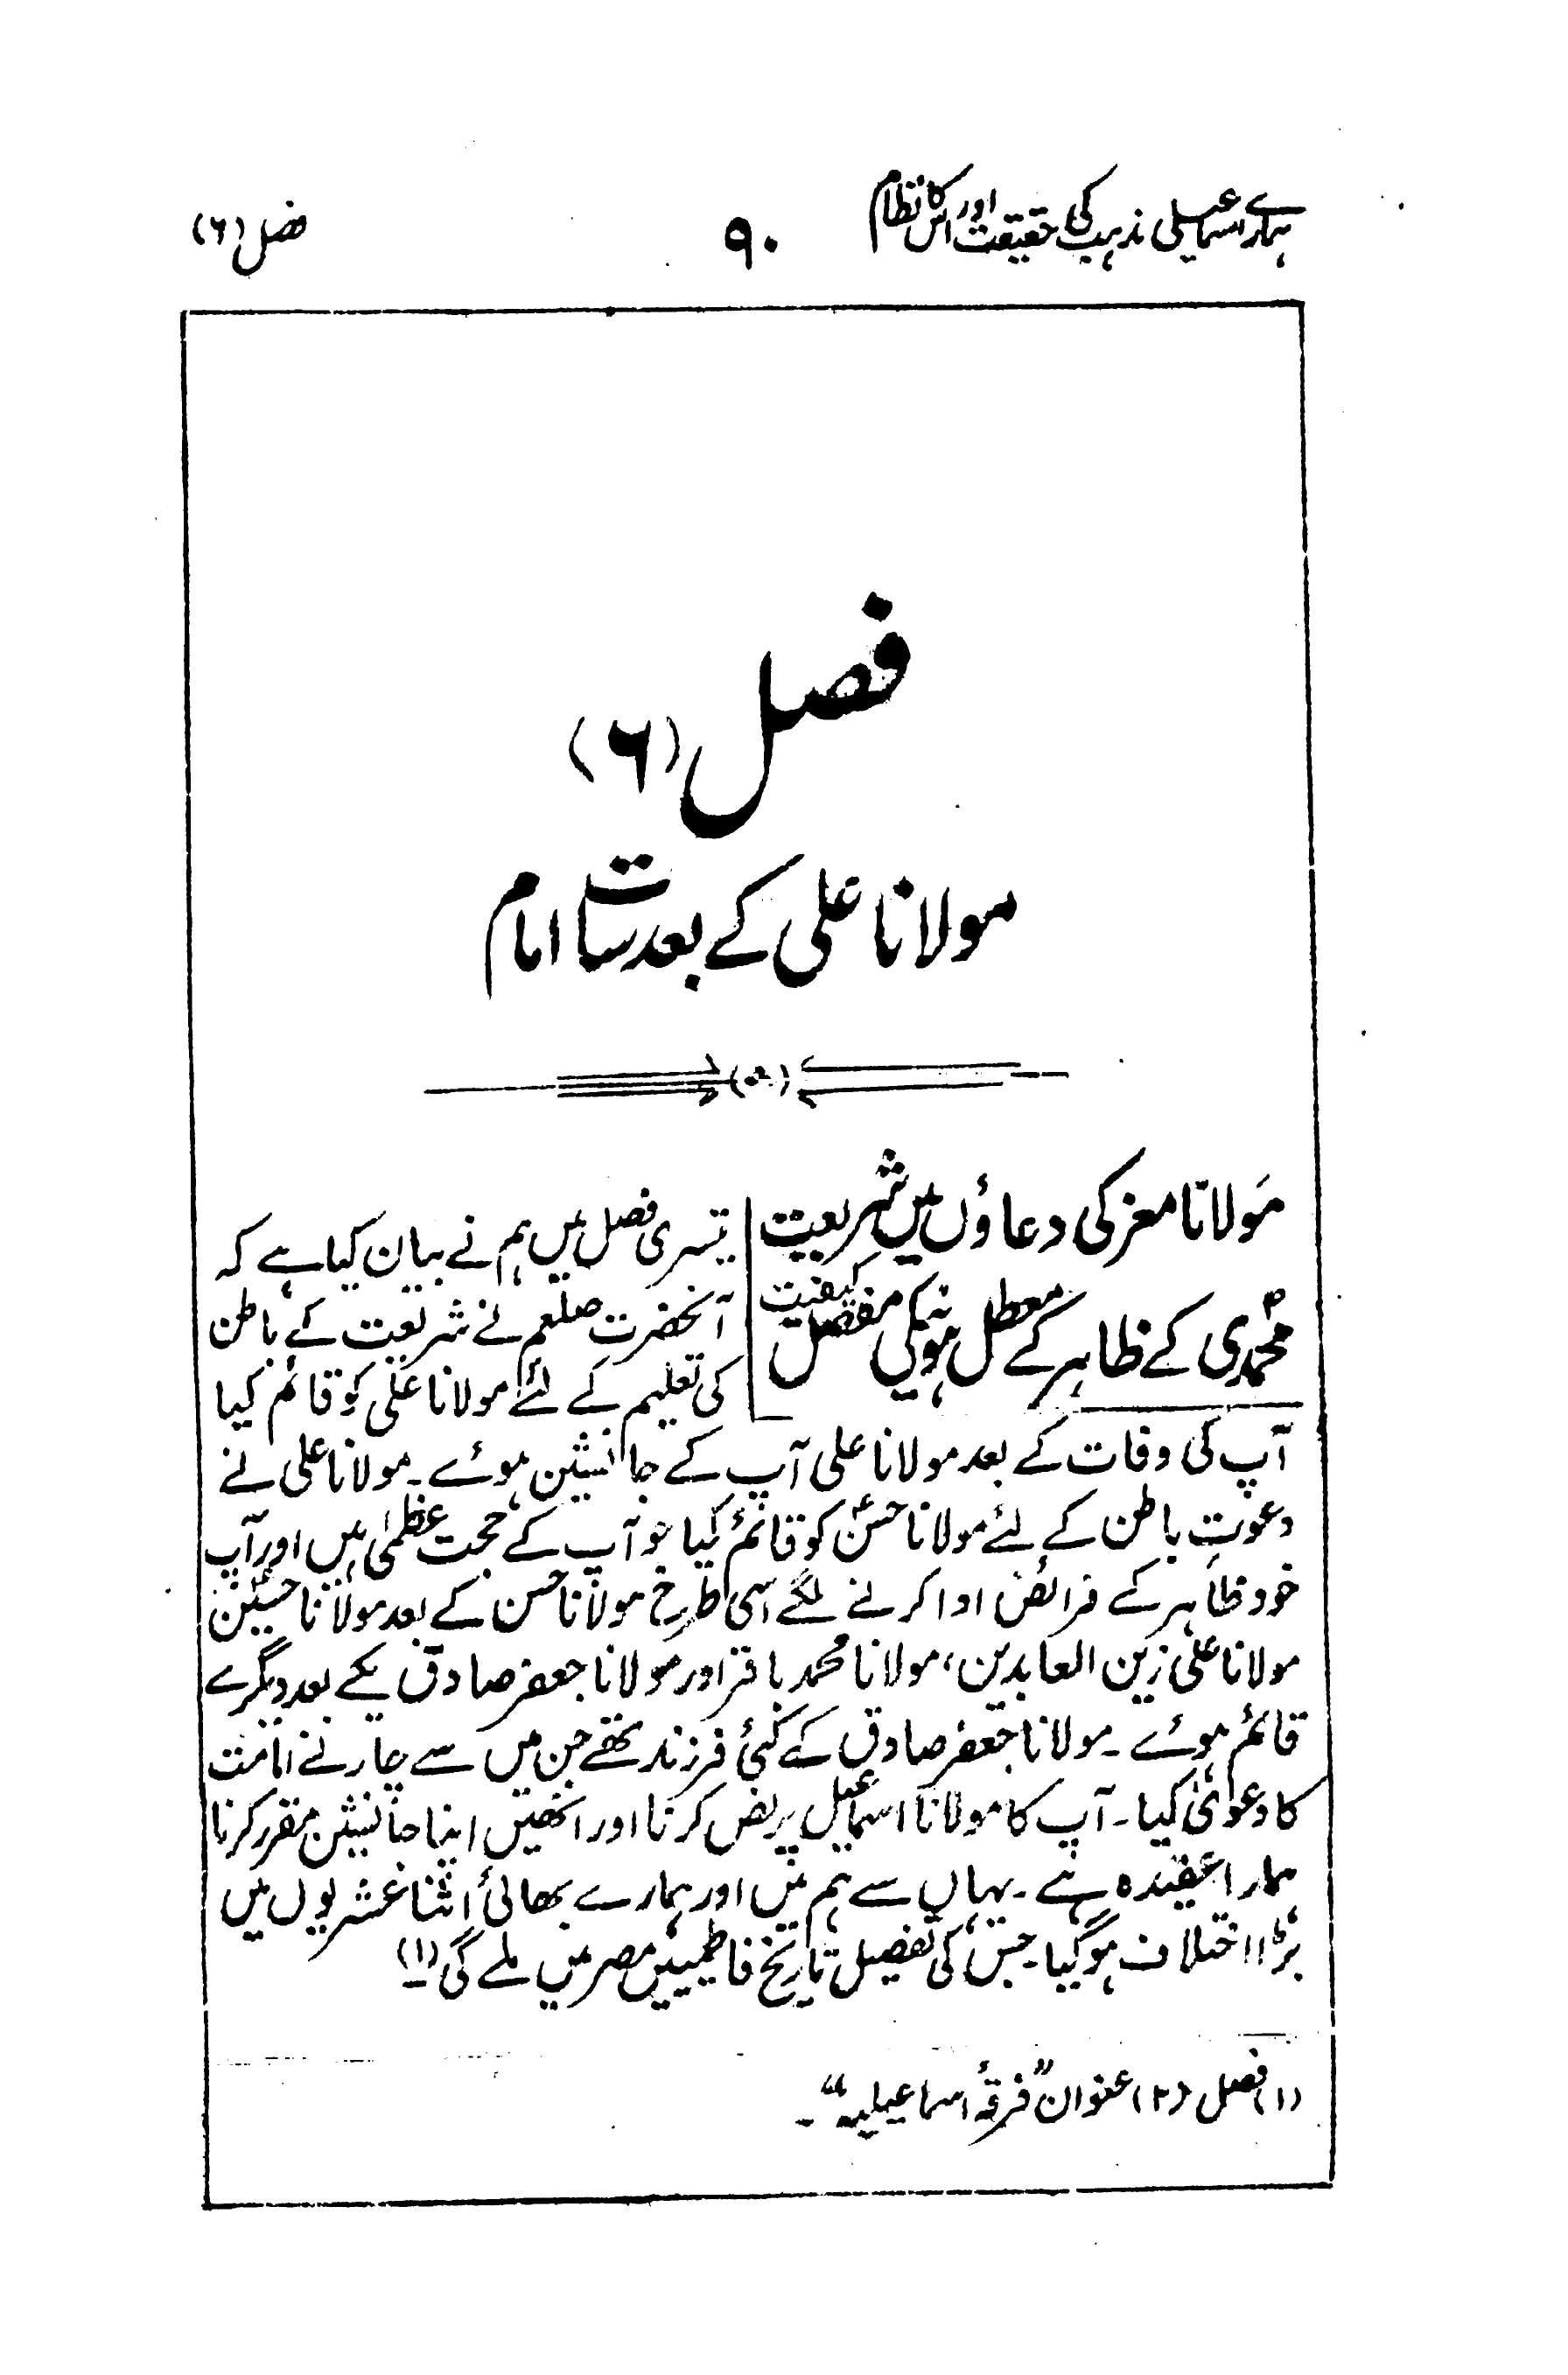 ہمارے اسماعیلی مذہب کی حقیقت اور اس کا نظام ۹۰ فصل (۶)
فصل (۶)
مولانا علی کے بعد سات امام
مولانا معز کی دعاؤں میں شریعت
محمدی کے ظاہر کے معطل ہونیکی مفصل کیفیت
تیسری فصل میں ہم نے بیان کیا ہے کہ
آنحضرت صلعم نے شریعت کے باطن
کی تعلیم کے لئے مولانا علی کو قائم کیا
آپ کی وفات کے بعد مولانا علی آپ کے جانشین ہوئے۔ مولانا علی نے
دعوتِ باطن کے لئے مولانا حسنؑ کو قائم کیا جو آپ کے حجت عظمیٰ ہیں اور آپ
خود ظاہر کے فرائض ادا کرنے لگے اسی طرح مولانا حسن کے بعد مولانا حسینؑ
مولانا علی زین العابدین، مولانا محمد باقر اور مولانا جعفر صادق یکے بعد دیگرے
قائم ہوئے۔ مولانا جعفر صادق کے کئی فرزند تھے جن میں سے چار نے امامت
کا دعویٰ کیا۔ آپ کا مولانا اسماعیل پر نص کرنا اور انھیں اپنا جانشین مقرر کرنا
ہمارا عقیدہ ہے۔ یہاں سے ہم میں اور ہمارے بھائی اثنا عشریوں میں
بڑا اختلاف ہو گیا۔ جس کی تفصیل تاریخ فاطمیین مصر میں ملے گی (۱)
(۱) فصل (۲) عنوان "فرقۂ اسماعیلیہ"۔